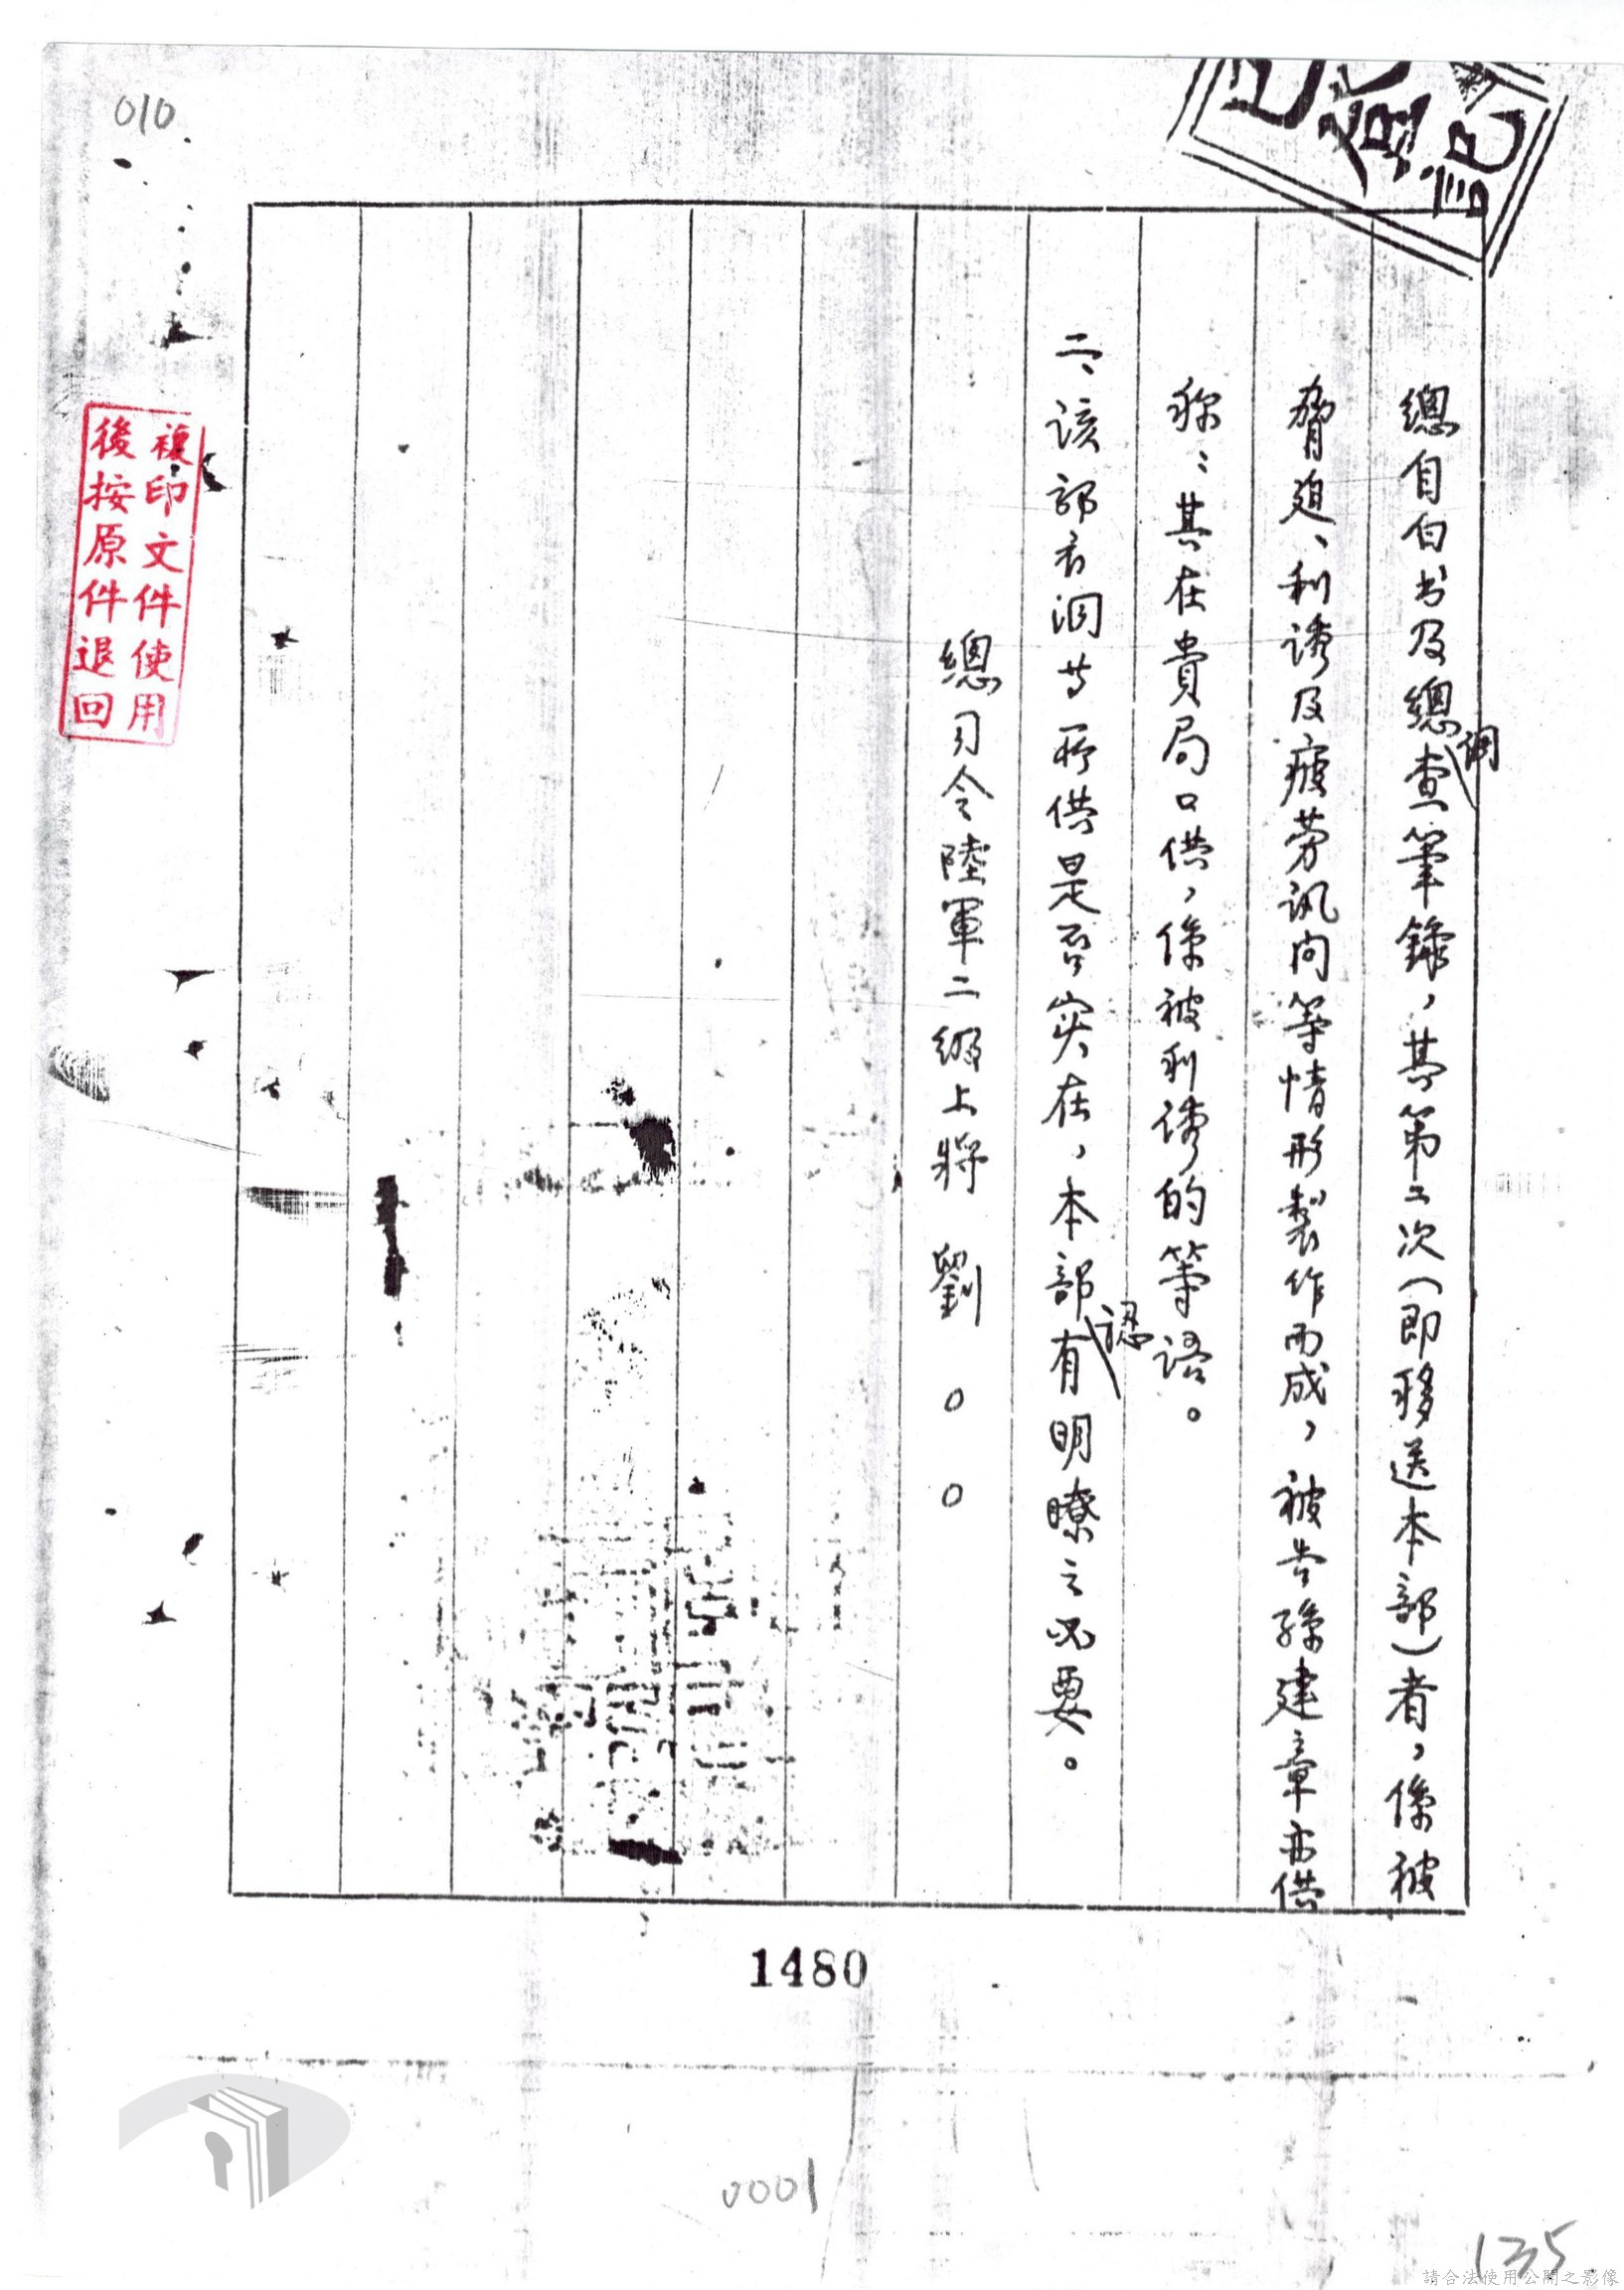 010
記
總自白书及總調查筆錄，其第二次（即移送本部）者，係被
脅迫、利誘及疲劳訊问等情形製作而成，被告孫建章亦供
称：其在貴局口供，係被利誘的等語。
二、该部
所供是否实在，本部認有明瞭之必要。
總司令陸軍二級上將 劉○○
複印文件使用
後按原件退回
1480
0001
135
請合法使用公開之影像